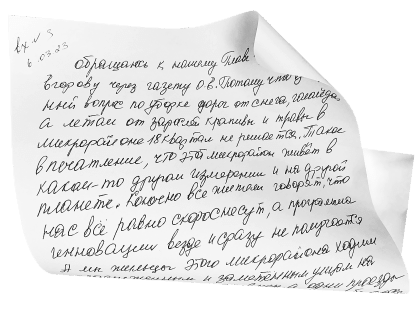 вх № 5
6.03.23
обращаюсь к нашему Главе
Егорову через газету О-В. Потому что
ный вопрос по уборке дорог от снега, гололёда
а летом от зарослей крапивы и травы в
микрорайоне 18 квартал не решается. Такое
впечатление, что этот микрорайон живёт в
каком-то другом измерении и на другой
планете. Конечно все жители говорят, что
нас всё равно скоро снесут, а программа
генновации везде и сразу не получается
А мы жители этого микрорайона ходим
и заметённым улицам на
а одни проезды